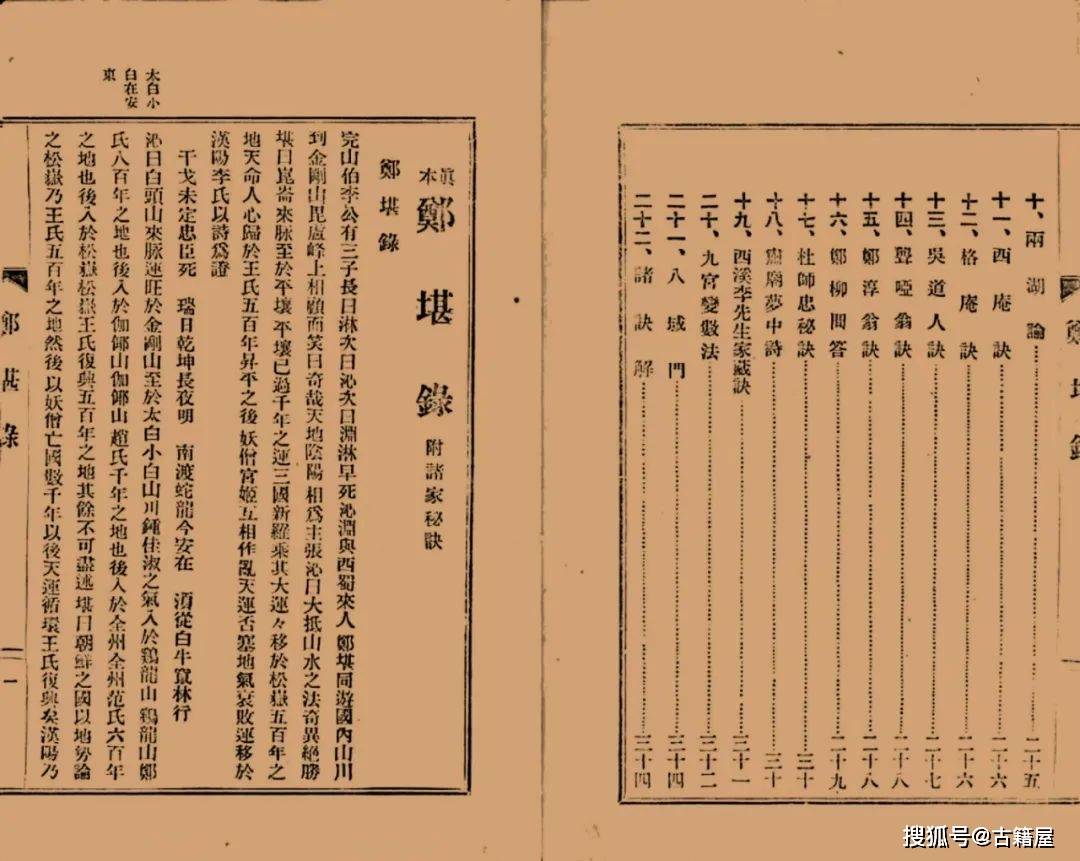 鄭堪錄
十、兩湖論……二十五
十一、西庵訣……二十六
十二、格庵訣……二十六
十三、吳道人訣……二十七
十四、聾啞翁訣……二十八
十五、鄭淳翁訣……二十八
十六、鄭柳問答……二十九
十七、杜師忠秘訣……三十
十八、廟夢中詩……三十
十九、西溪李先生家藏訣……三十一
二十、九宮變數法……三十二
二十一、八域門……三十四
二十二、諸訣解……三十四
眞本 鄭堪錄 附諸家秘訣
鄭堪錄
完山伯李公有三子長曰淋次曰沁次曰淵淋早死沁淵與西蜀來人鄭堪同遊國內山川
到金剛山毘盧峰上相顧而笑曰奇哉天地陰陽相爲主張沁曰大抵山水之法奇異絕勝
堪曰崑崙來脉至於平壤平壤已過千年之運三國新羅乘其大運々移於松嶽五百年之
地天命人心歸於王氏五百年昇平之後妖僧宮姬互相作亂天運否塞地氣衰敗運移於
漢陽李氏以詩爲證
干戈未定忠臣死 瑞日乾坤長夜明 南渡蛇龍今安在 須從白牛竄林行
沁曰白頭山來脉運旺於金剛山至於太白小白山川鍾佳淑之氣入於鷄龍山鷄龍山鄭
氏八百年之地也後入於伽倻山伽倻山趙氏千年之地也後入於全州全州范氏六百年
之地也後入於松嶽松嶽王氏復興五百年之地其餘不可盡述堪曰朝鮮之國以地勢論
之松嶽乃王氏五百年之地然後以妖僧亡國數千年以後天運循環王氏復興矣漢陽乃
太白小
白在安
東
鄭堪錄
一
搜狐号@古籍屋